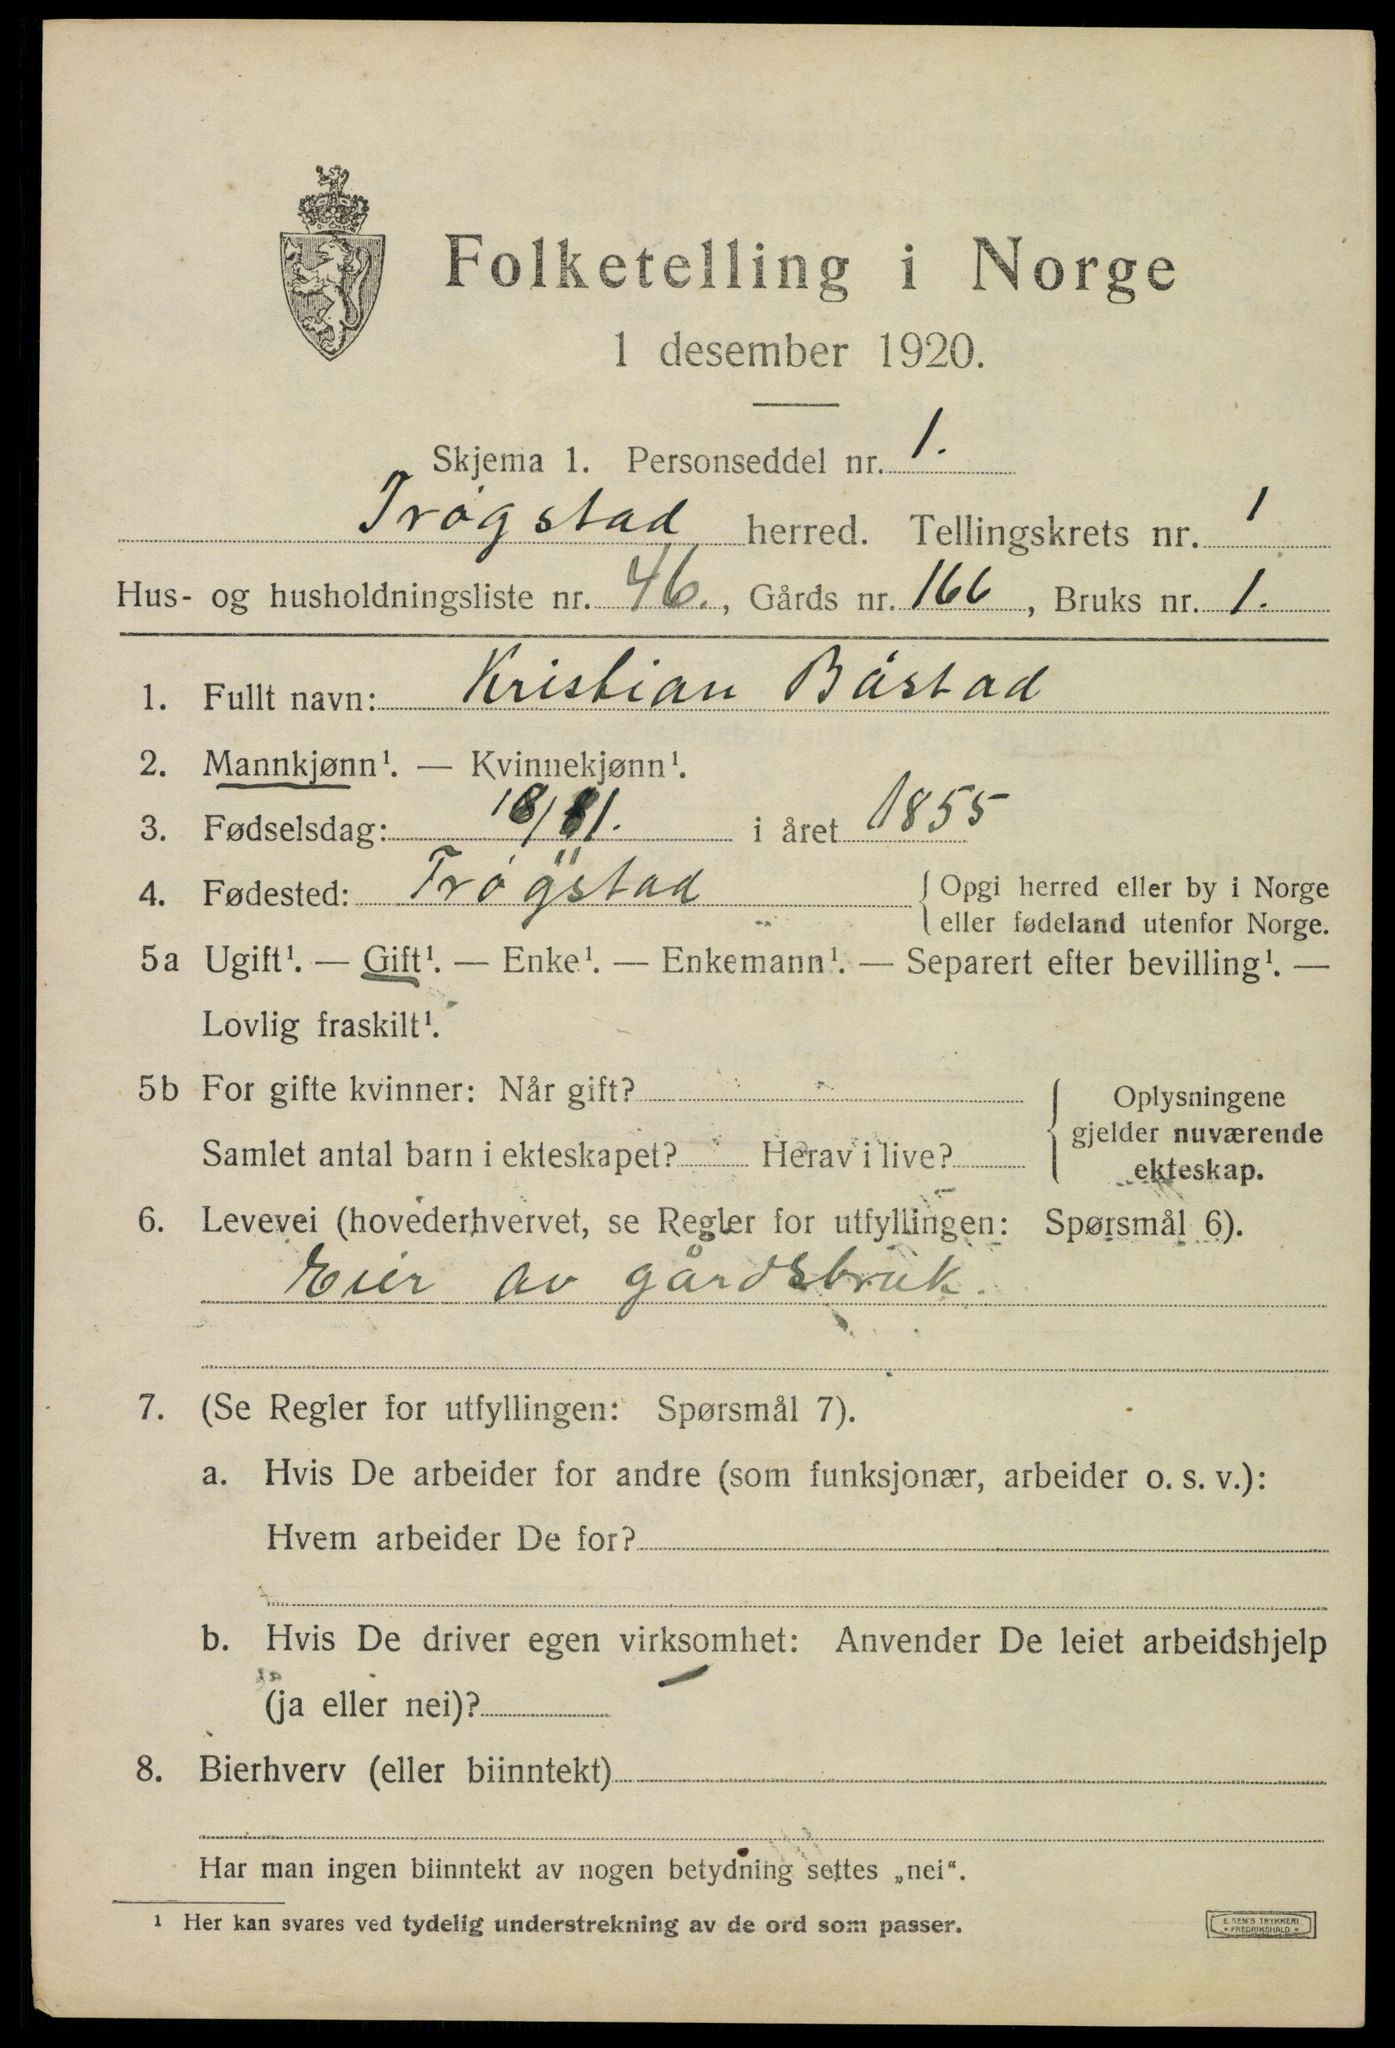 Folketelling i Norge
1 desember 1920.
Skjema 1. Personseddel nr. 1.
Trøgstad herred. Tellingskrets nr. 1
Hus- og husholdningsliste nr. 46., Gårds nr. 166, Bruks nr. 1.
1. Fullt navn: Kristian Båstad
2. Mannkjønn¹. — Kvinnekjønn¹.
3. Fødselsdag: i året 1855
4. Fødested: Trøgstad { Opgi herred eller by i Norge
eller fødeland utenfor Norge.
5a Ugift¹. — Gift¹. — Enke¹. — Enkemann¹. — Separert efter bevilling¹. —
Lovlig fraskilt¹.
5b For gifte kvinner: Når gift? { Oplysningene
gjelder nuværende
Samlet antal barn i ekteskapet? Herav i live? ekteskap.
6. Levevei (hovederhvervet, se Regler for utfyllingen: Spørsmål 6).
Eier av gårdsbruk.
7. (Se Regler for utfyllingen: Spørsmål 7).
a. Hvis De arbeider for andre (som funksjonær, arbeider o. s. v.):
Hvem arbeider De for?
b. Hvis De driver egen virksomhet: Anvender De leiet arbeidshjelp
(ja eller nei)?
8. Bierhverv (eller biinntekt)
Har man ingen biinntekt av nogen betydning settes „nei“.
¹ Her kan svares ved tydelig understrekning av de ord som passer.
E. SEM'S TRYKKERI
• FREDRIKSHALD •